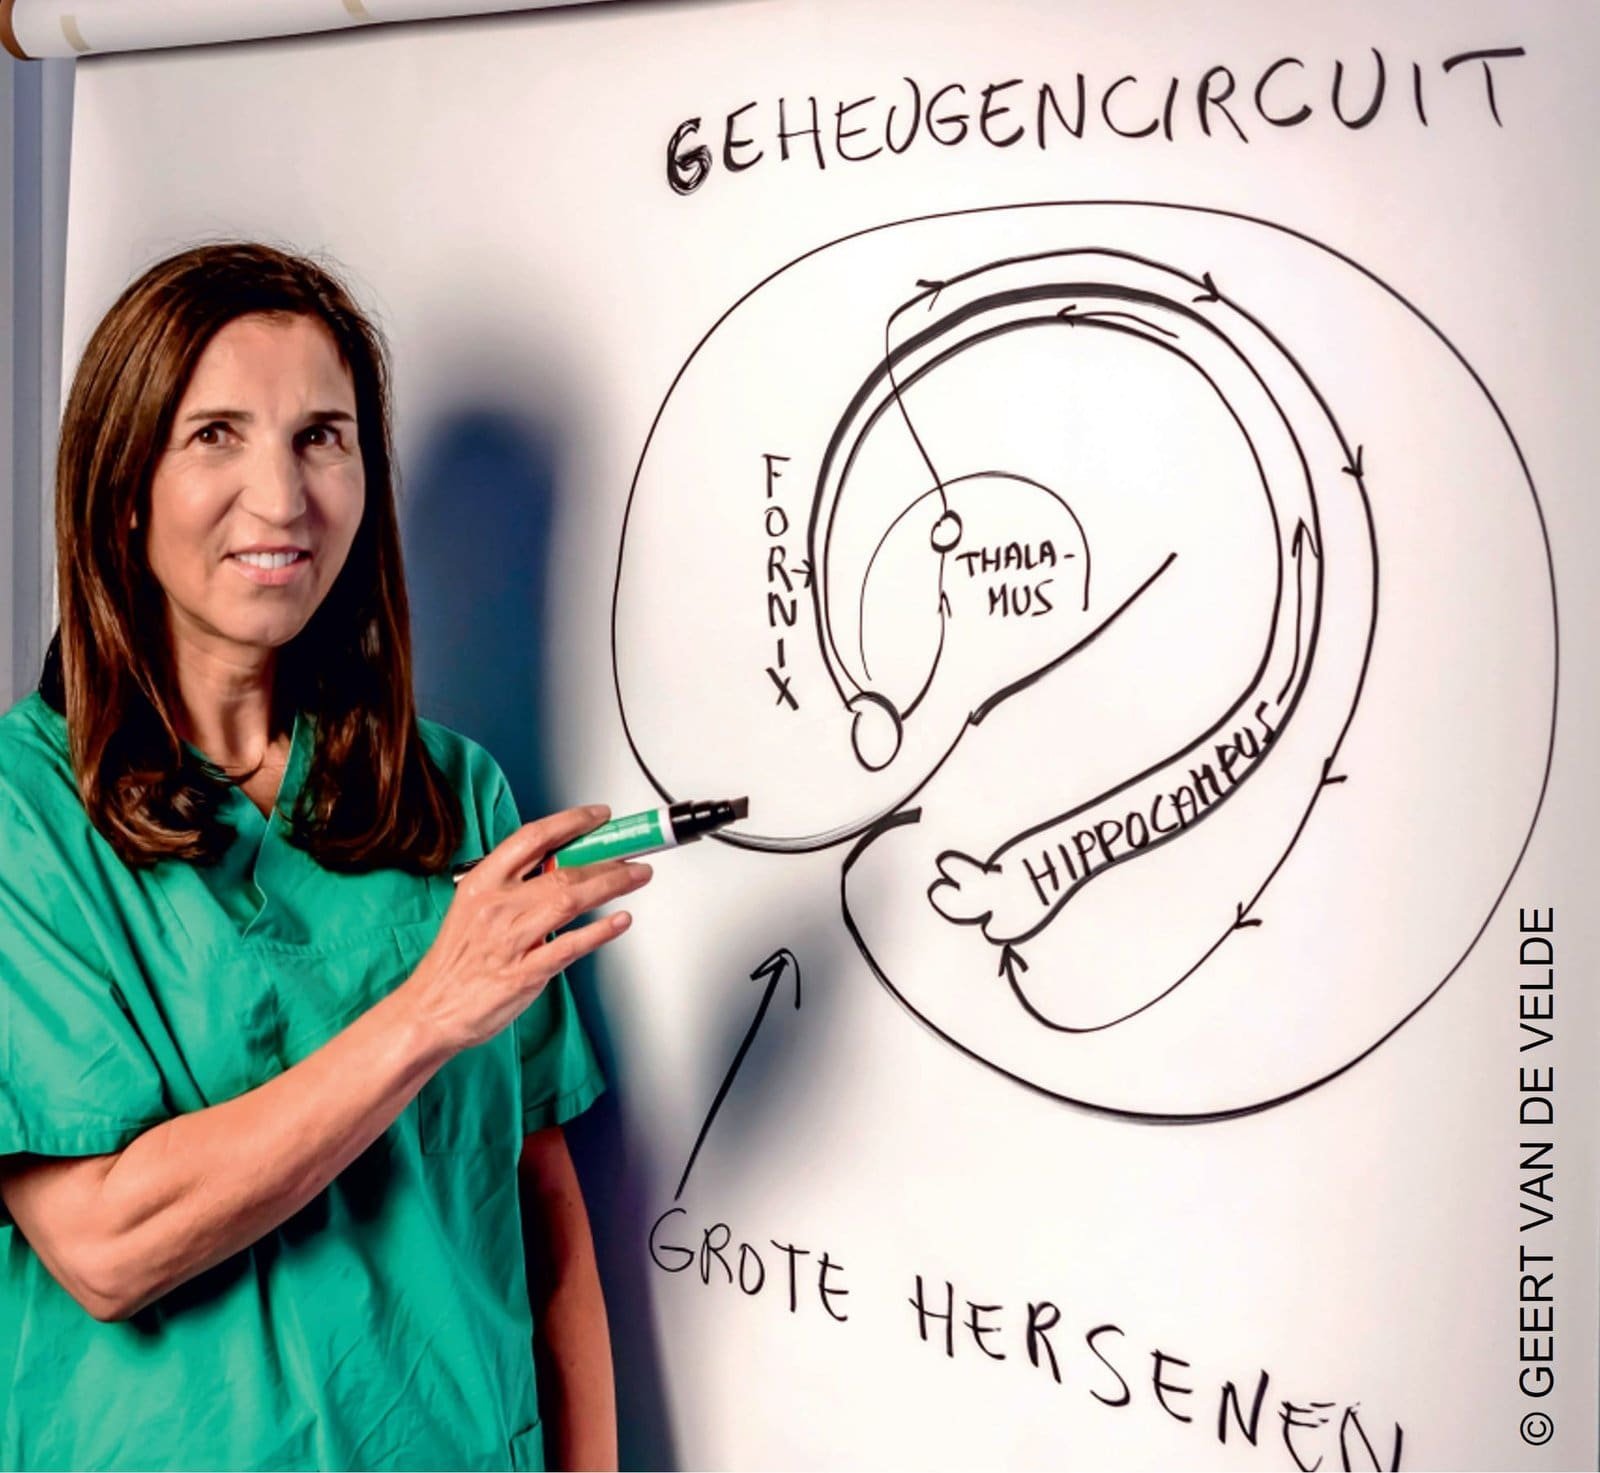 GEHEUGENCIRCUIT
FORNIX
THALA-
MUS
HIPPOCAMPUS
GROTE HERSENEN
© GEERT VAN DE VELDE